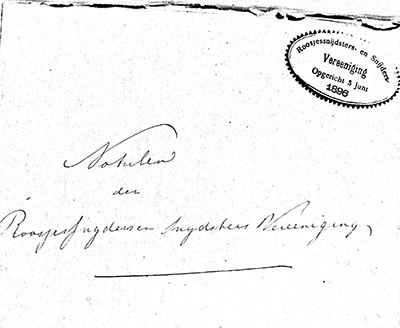 Roosjessnijdsters- en Snijders-
Vereeniging
Opgericht 5 Juni
1896
Notulen
der
Roosjessnyders en Snydsters Vereeniging